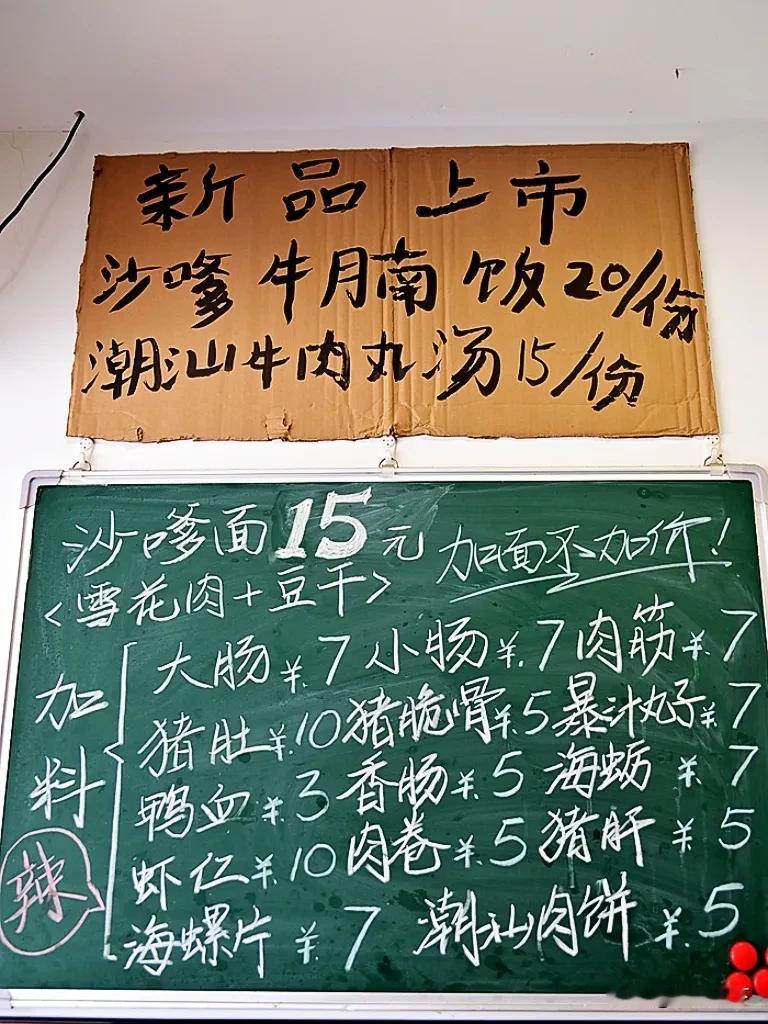 新品上市
沙嗲牛腩饭20/份
潮汕牛肉丸汤15/份
沙嗲面15元 加面不加价!
<雪花肉+豆干>
加料
大肠¥.7 小肠¥.7 肉筋¥.7
猪肚¥.10 猪脆骨¥.5 暴汁丸子¥.7
鸭血¥.3 香肠¥.5 海蛎¥.7
虾仁¥.10 肉卷¥.5 猪肝¥.5
海螺片¥.7 潮汕肉饼¥.5
辣